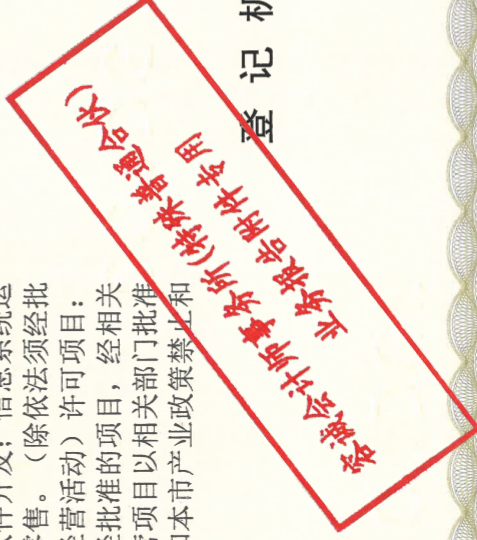 件开发；信息系统运
售。（除依法须经批
经营活动）许可项目：
经批准的项目，经相关
营项目以相关部门批准
和本市产业政策禁止和
登 记 机
容诚会计师事务所(特殊普通合伙)
业务报告附件专用